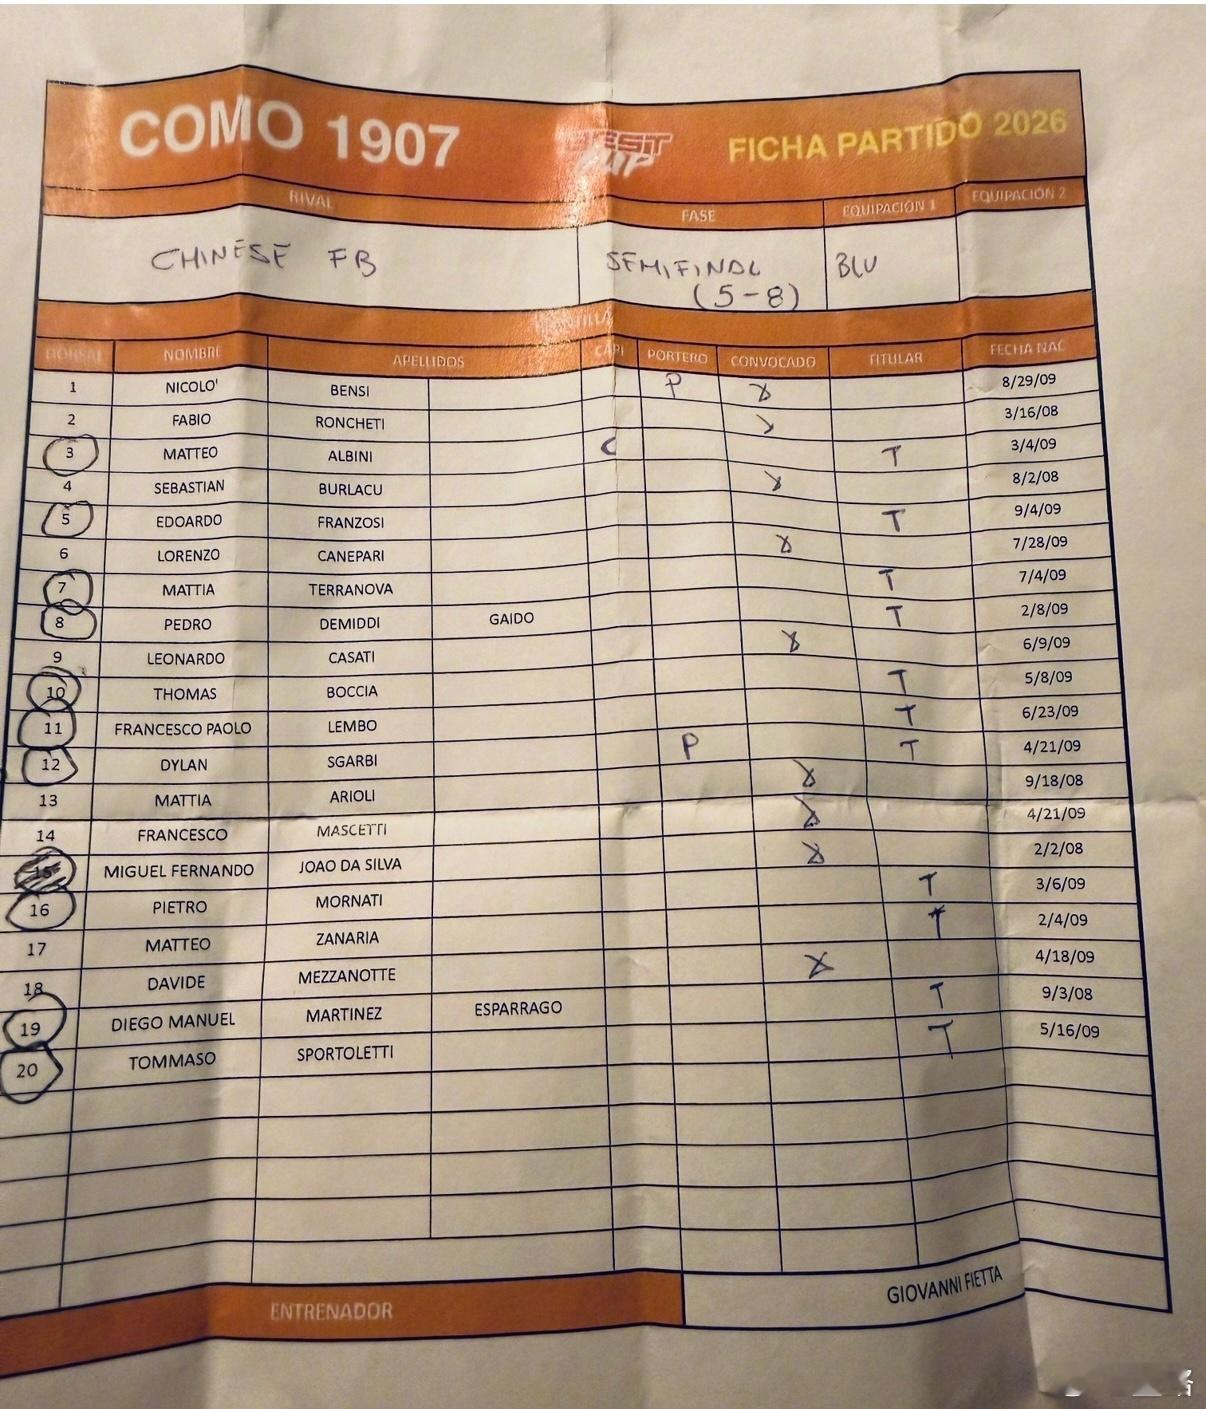 COMO 1907 BEST CUP FICHA PARTIDO 2026
RIVAL FASE EQUIPACIÓN 1 EQUIPACIÓN 2
CHINESE FB SEMIFINAL BLU
(5-8)
DORSAL NOMBRE APELLIDOS CAPI PORTERO CONVOCADO TITULAR FECHA NAC
1 NICOLO' BENSI P X 8/29/09
2 FABIO RONCHETI X 3/16/08
3 MATTEO ALBINI C T 3/4/09
4 SEBASTIAN BURLACU X 8/2/08
5 EDOARDO FRANZOSI T 9/4/09
6 LORENZO CANEPARI X 7/28/09
7 MATTIA TERRANOVA T 7/4/09
8 PEDRO DEMIDDI GAIDO T 2/8/09
9 LEONARDO CASATI X 6/9/09
10 THOMAS BOCCIA T 5/8/09
11 FRANCESCO PAOLO LEMBO T 6/23/09
12 DYLAN SGARBI P T 4/21/09
13 MATTIA ARIOLI X 9/18/08
14 FRANCESCO MASCETTI X 4/21/09
15 MIGUEL FERNANDO JOAO DA SILVA X 2/2/08
16 PIETRO MORNATI T 3/6/09
17 MATTEO ZANARIA T 2/4/09
18 DAVIDE MEZZANOTTE X 4/18/09
19 DIEGO MANUEL MARTINEZ ESPARRAGO T 9/3/08
20 TOMMASO SPORTOLETTI T 5/16/09
ENTRENADOR GIOVANNI FIETTA